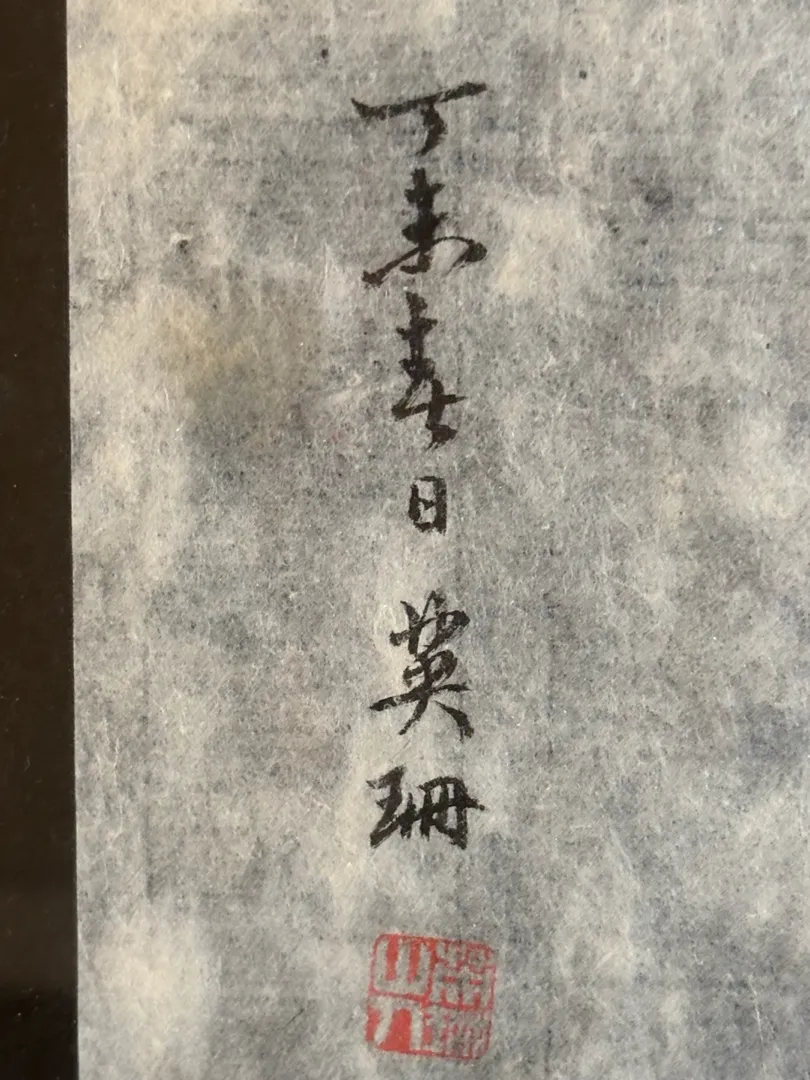 丁未春日 英珊